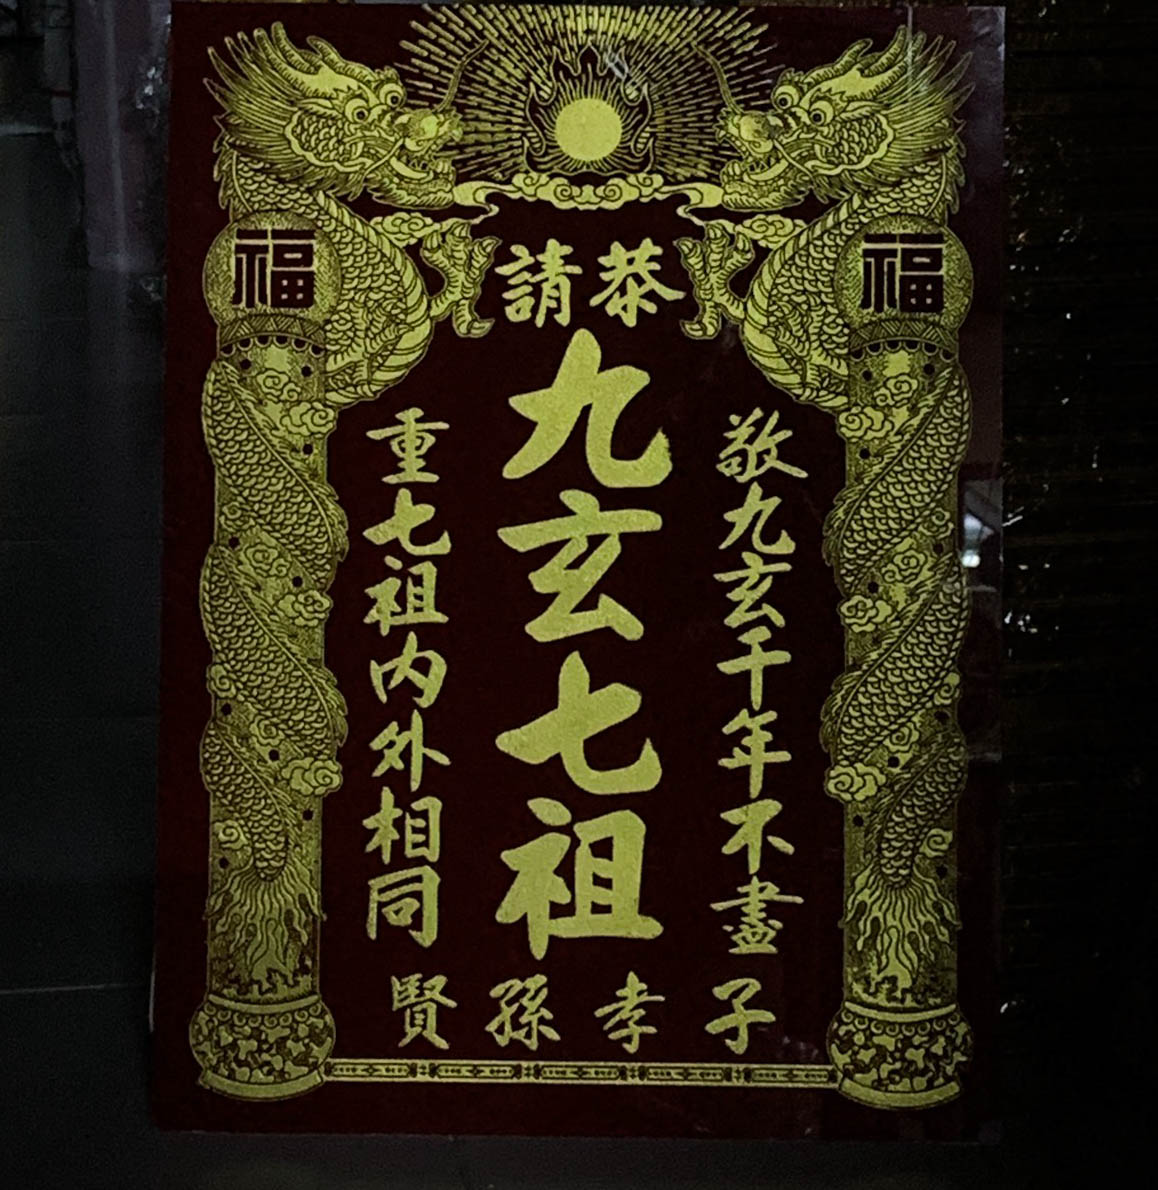 福
福
恭請
敬九玄千年不盡
九玄七祖
重七祖內外相同
子孝孫賢